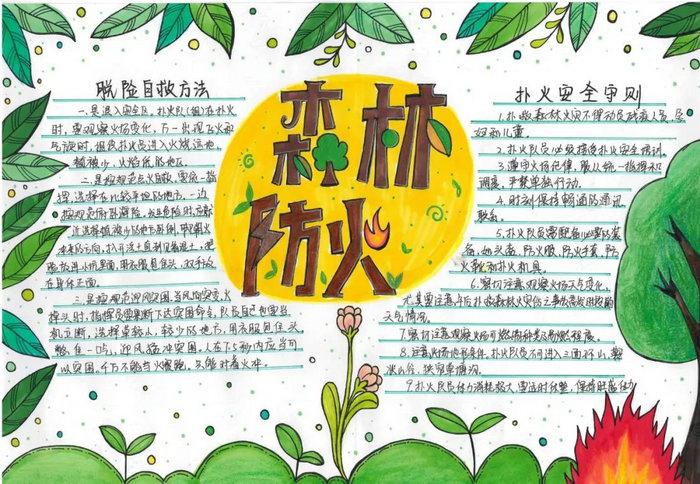 森林
防火
脱险自救方法
一是退入安全区。扑火队(组)在扑火
时,要观察火场变化,万一出现飞火和
气旋时,组织扑火人员进入火烧迹地、
植被少、火焰低的地区。
二是按规范点火自救。要统一指
挥,选择在比较平坦的地方,一边
按规范俯卧避险。发生危险时,应就
近选择植被少的地方卧倒,脚朝火
冲来的方向,扒开浮土直到见着湿土,把
脸放进小坑里面,用衣服包住头,双手放
在身体正面。
三是按规范迎风突围。当风向突变,火
掉头时,指挥员要果断下达突围命令,队员自己也要当
机立断,选择草较小、较少的地方,用衣服包住头,
憋住一口气,迎风猛冲突围。人在7.5秒内应当可
以突围。千万不能与火赛跑,只能对着火冲。
扑火安全守则
1.扑救森林火灾不得动员残疾人员、孕
妇和儿童。
2.扑火队员必须接受扑火安全培训。
3.遵守火场纪律,服从统一指挥和
调度,严禁单独行动。
4.时刻保持畅通的通讯
联系。
5.扑火队员需配备必要的装
备,如头盔、防火服、防火手套、防
火靴和扑火机具。
6.密切注意观察火场天气变化,
尤其要注意午后扑救森林火灾伤亡事故高发时段的
天气情况。
7.密切注意观察火场可燃物种类及易燃程度。
8.注意火场地形条件。扑火队员不可进入三面环山、鞍
状山谷、狭窄草塘沟、
9.扑火队员体力消耗较大,要适时休整,保持旺盛体力